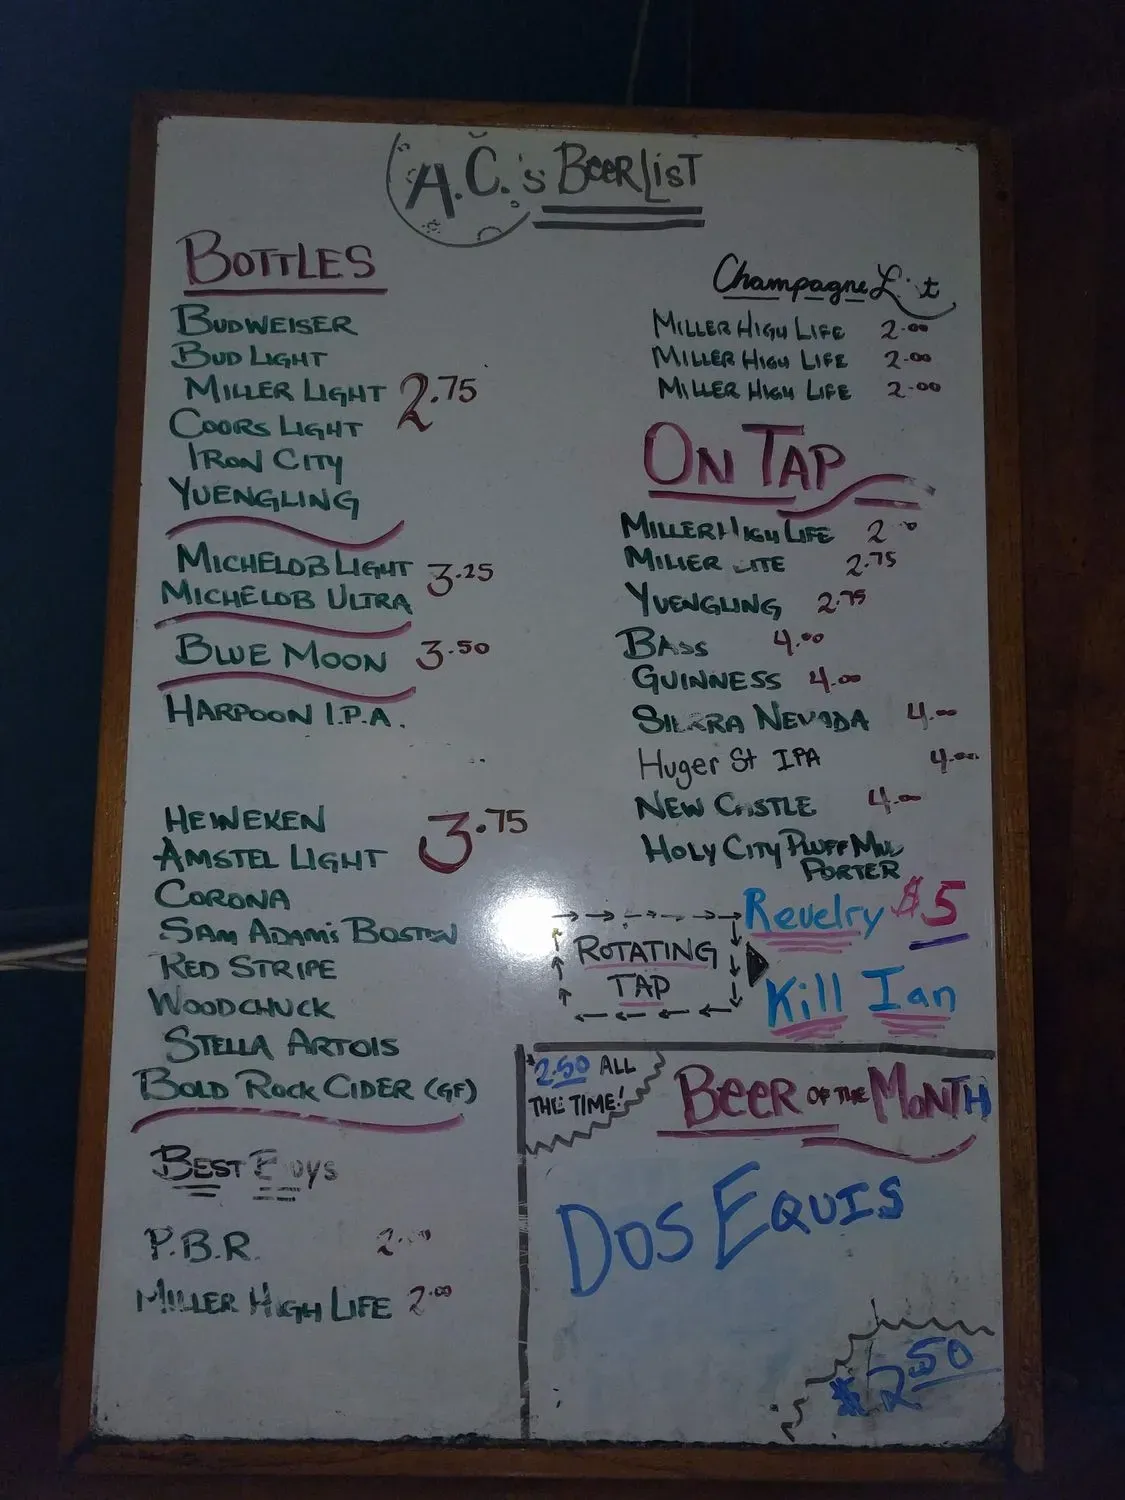 A.C.'s BEER LIST
BOTTLES
BUDWEISER
BUD LIGHT
MILLER LIGHT 2.75
COORS LIGHT
IRON CITY
YUENGLING
MICHELOB LIGHT 3.25
MICHELOB ULTRA
BLUE MOON 3.50
HARPOON I.P.A.
HEINEKEN
AMSTEL LIGHT 3.75
CORONA
SAM ADAMS BOSTON
RED STRIPE
WOODCHUCK
STELLA ARTOIS
BOLD ROCK CIDER (GF)
BEST Buys
P.B.R. 2.00
MILLER HIGH LIFE 2.00
Champagne List
MILLER HIGH LIFE 2.00
MILLER HIGH LIFE 2.00
MILLER HIGH LIFE 2.00
ON TAP
MILLER HIGH LIFE 2
MILLER LITE 2.75
YUENGLING 2.75
BASS 4.00
GUINNESS 4.00
SIERRA NEVADA 4.00
Huger St IPA 4.00
NEW CASTLE 4.00
HOLY CITY PLUFF MUD
PORTER
ROTATING
TAP
Revelry $5
Kill Ian
2.50 ALL
THE TIME!
BEER OF THE MONTH
DOS EQUIS
$2.50